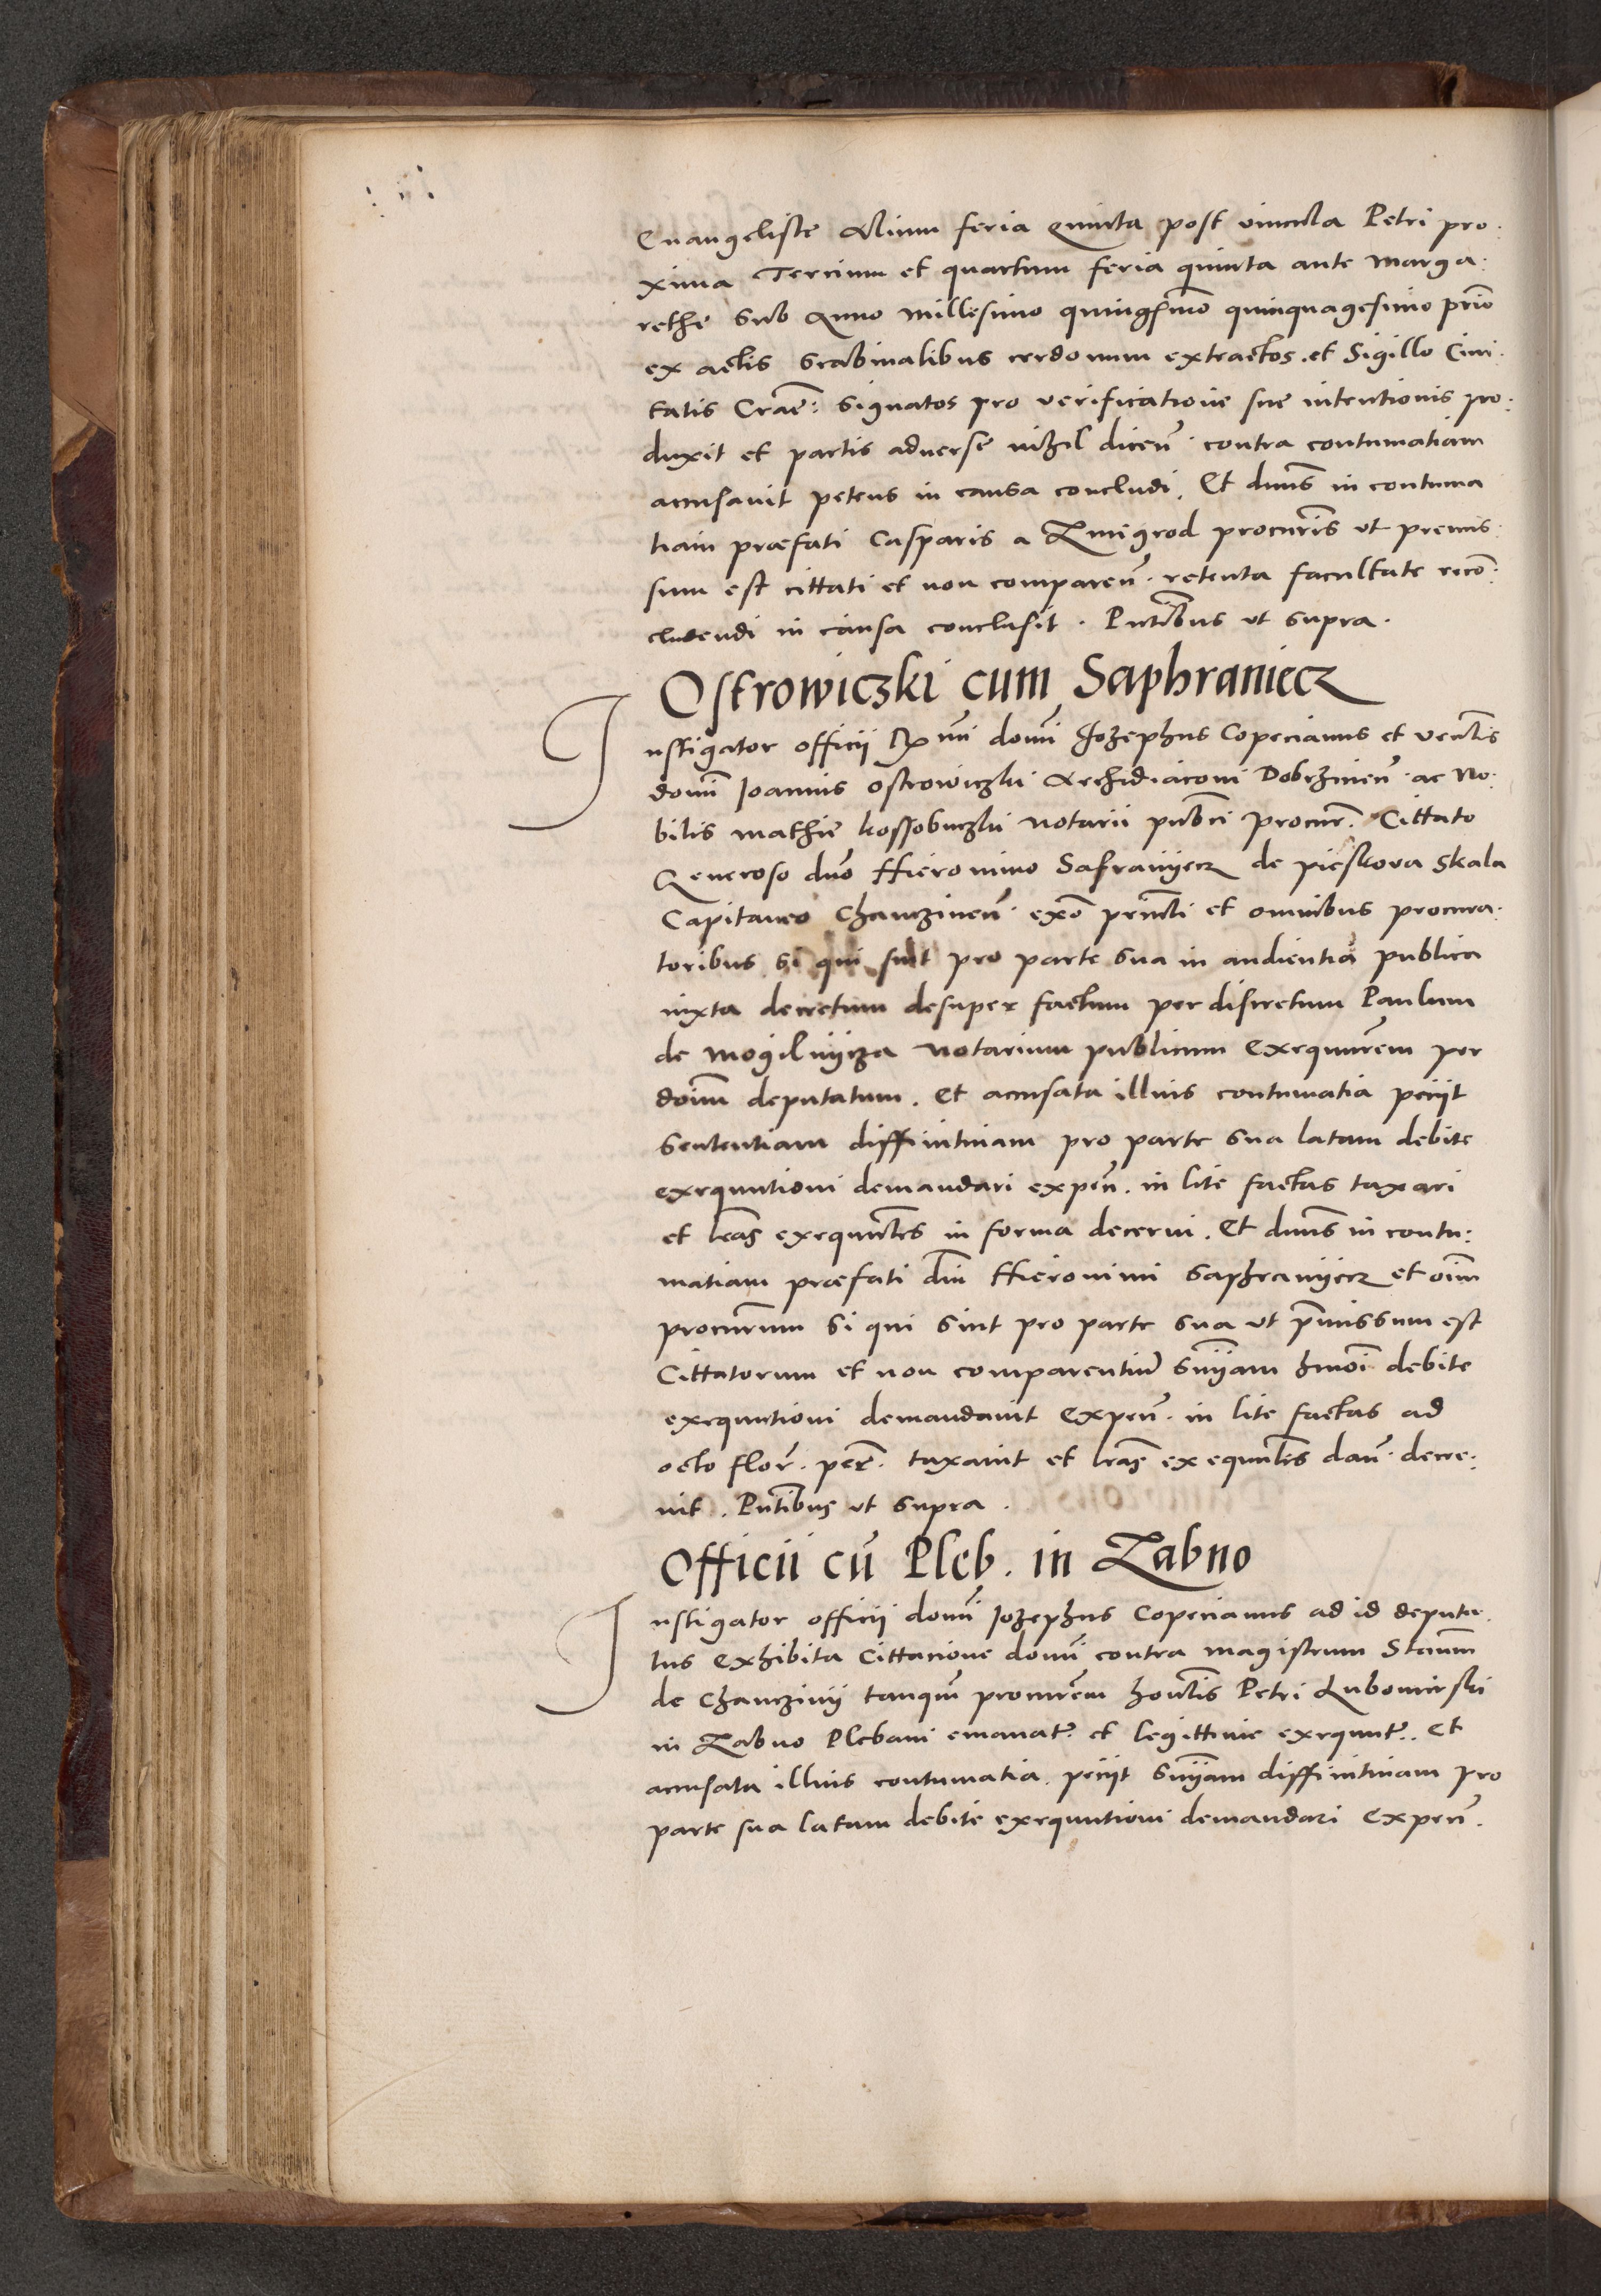 Euangeliste Alium feria Quinta post vincula Petri pro:
xima Tercium et quartum feria quinta ante Marga:
rethe Sub Anno millesimo quinges̃imo quinquagesimo prĩo
ex actis Scabinalibus cerdonum extractos. et Sigillo Ciui:
tatis Crac̃: Signatos pro verificatione sue intentionis pro:
duxit et partis aduerse nihil diceñ. contra contumatiam
accusauit petens in causa concludi. Et dnũs in contuma
tiam præfati Casparis a Zmigrod procurr̃is vt premis:
sum est cittati et non compareñ. retenta facultate reco̅:
cludendi in causa conclusit. Pñtibus vt supra.
Ostrowiczki cum Saphraniecz
Instigator officii R̃mi domĩ Jozephus Copecianus et venĩlis
domĩ Joannis Ostrowiczki Archidiaconi Dobrzineñ. ac No:
bilis Mathie Kossobuczki Notarii publĩci Procur̃. Cittato
Generoso dnõ Hieronimo Safranijecz de Pieskova Skala
Capitaneo Chanczineñ. exõ princĩli et omnibus procura:
toribus si qui sint pro parte sua in audientia publica
iuxta decretum desuper factum per discretum Paulum
de Mogilnijcza Notarium publicum Exequutor̃em per
doĩm deputatum. Et accusata illius contumatia petijt
Sententiam diffinitiuam pro parte sua latam debite
exequutioni demandari expeñ. in lite factas taxari
et lrãs exequutor̃les in forma decerni. Et dnũs in contu:
matiam præfati dnĩ Hieronimi Saphranijecz et oĩm
procurr̃um si qui sint pro parte sua vt p̃missum est
Cittatorum et non comparentiũ Snĩam hmõi debite
exequutioni demandauit Expeñ. in lite factas ad
octo flor̃. per̃. taxauit et lrãs exequutor̃les dañ. decre:
uit. Pñtibus vt supra.
Officii cũ Pleb. in Zabno
Instigator officii domĩ Jozephus Copecianus ad id deputa
tus Exhibita Cittacione domĩ contra magistrum Stanĩm
de Chanczinij tanquã procurr̃em honĩlis Petri Lubomirski
in Zabno Plebani emanat̃. et legittime exequut̃. Et
accusata illius contumatia. petijt Snĩam diffinitiuam pro
parte sua latam debite exequutioni demandari Expeñ.